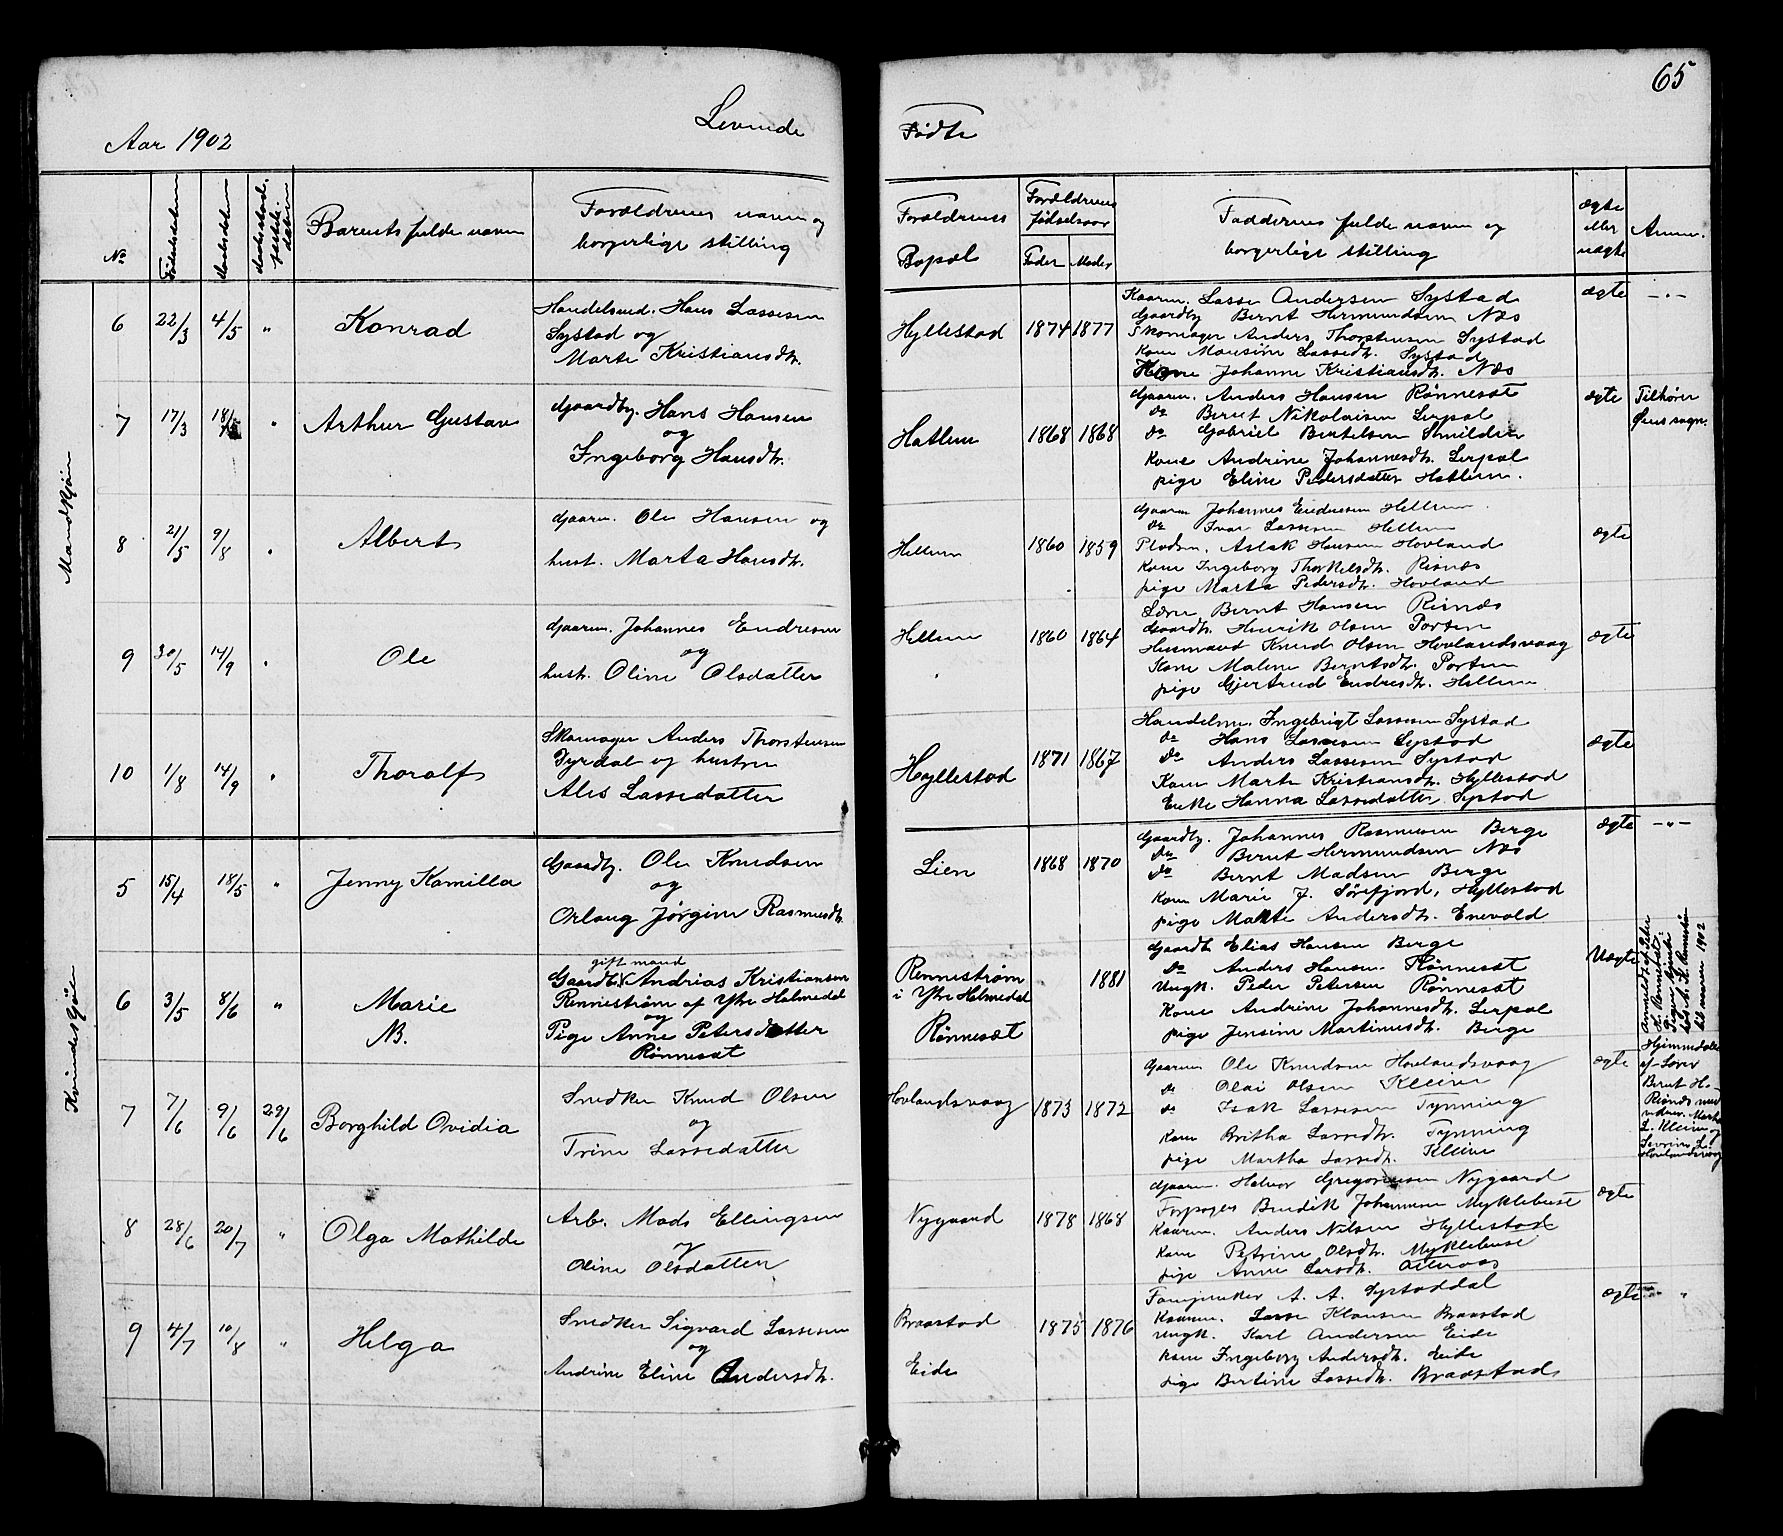 65
Aar 1902
Levende
Fødte
No
Fødselsdatum
Daabsdatum
Barnets fulde navn
Forældrenes navn og
borgerlige stilling
Forældrenes
Bopæl
Forældrenes
fødselsaar
Fader
Moder
Faddernes fulde navn og
borgerlige stilling
ægte
eller
uægte
Anm.
Mandkjøn
6 22/3 4/5 " Konrad
Handelsmd. Hans Lassesen
Systad og
Marte Kristiansdtr.
Hyllestad 1874 1877
Kaarm. Lasse Andersen Systad
Gaardbr. Bernt Hermundsen Næs
Skomager Anders Thorstensen Systad
Kone Monsine Lassedtr. Systad
Kone Johanne Kristiansdtr. Næs
ægte
7 17/3 18/5 " Arthur Gustav
Gaardbr. Hans Hansen
og
Ingeborg Hansdtr.
Hatlem 1868 1868
Gaarm. Anders Hansen Rønneset
do Bernt Nikolaisen Lerpol
do Gabriel Bertelsen Smilden
Kone Andrine Johannesdtr. Lerpol
pige Eline Pedersdatter Hatlem.
ægte
Tilhører
Øens sogn.
8 21/5 9/8 " Albert
Gaarm. Ole Hansen og
hust. Marta Hansdtr.
Hellem 1860 1859
Gaarm Johannes Endresen Hellem
do Ivar Lassesen Hellem
Pladsm. Aslak Hansen Hovland
Kone Ingeborg Thorkelsdtr. Risnes
pige Marta Pedersdtr. Hovland
ægte
9 30/5 14/9 " Ole
Gaarm. Johannes Endresen
og
hust. Oline Olsdatter
Hellem 1860 1864
Lærer Bernt Hansen Risnæs
Gaardbr. Henrik Olsen Porten
Husmand Knud Olsen Hovlandsvaag
Kone Malene Berntsdtr. Porten
pige Gjertrud Endresdtr. Hellem
ægte
10 1/8 14/9 " Thoralf
Skomager Anders Thorstensen
Tyrdal og hustru
Ales Lassedatter
Hyllestad 1871 1867
Handelsm. Ingebrigt Lassesen Systad
do Hans Lassesen Systad
do Anders Lassesen Systad
Kone Marte Kristiansdtr. Hyllestad
Enke Hanna Lassedatter Systad
ægte
Kvindekjøn
5 15/4 18/5 " Jenny Kamilla
Gaardbr. Ole Knudsen
og
Orlaug Jørgine Rasmusdtr.
Lien 1868 1870
Gaardbr. Johannes Rasmusen Berge
Do Bernt Hermundsen Næs
Do Bernt Madsen Berge
Kone Marie J. Sørefjord, Hyllestad
pige Marte Andersdtr. Enevold
ægte
6 3/5 8/6 " Marie
N.
gift mand
Gaardbr. Andrias Kristiansen
Rennestrøm af Ytre Holmedal
og
Pige Anne Petersdatter
Rønneset
Rennestrøm
i Ytre Holmedal
Rønnesæt
1881
Gaardbr. Elias Hansen Berge
Do Anders Hansen Rønneset
Ungk. Peder Petersen Rønneset
Kone Andrine Johannesdtr. Lerpol
pige Jensine Martinusdtr. Berge
Uægte
7 7/6 9/6 29/6 Borghild Ovidia
Snedker Knud Olsen
og
Trine Lassedatter
Hovlandsvaag 1873 1872
Gaarm Ole Knudsen Hovlandsvaag
do Olai Olsen Kleiva
do Isak Lassesen Tynning
Kone Britha Lassedtr. Tynning
pige Martha Lassedtr. Kleive
ægte
Hjemmedøbt
af Lærer
Bernt H.
Risnæs
8 28/6 20/7 " Olga Mathilde
Arb. Mads Ellingsen
og
Oline Olsdatter
Nygaard 1878 1868
Gaarm. Halvor Gregoriusen Nygaard
Forpagter Bendik Johannesen Myklebust
Kaarm. Anders Nilsen Hyllestad
Kone Petrine Olsdtr. Myklebust
pige Anne Larsdtr.
ægte
9 4/7 10/8 " Helga
Snedker Sigvard Lassesen
og
Andrine Eline Andersdtr.
Braastad
Eide
1875 1876
A. A. Systaddal
Kaarm. Lasse Klausen Braastad
Ungk. Karl Andersen Eide
Kone Ingeborg Andersdtr. Eide
pige Bertine Lassedtr. Braastad
ægte